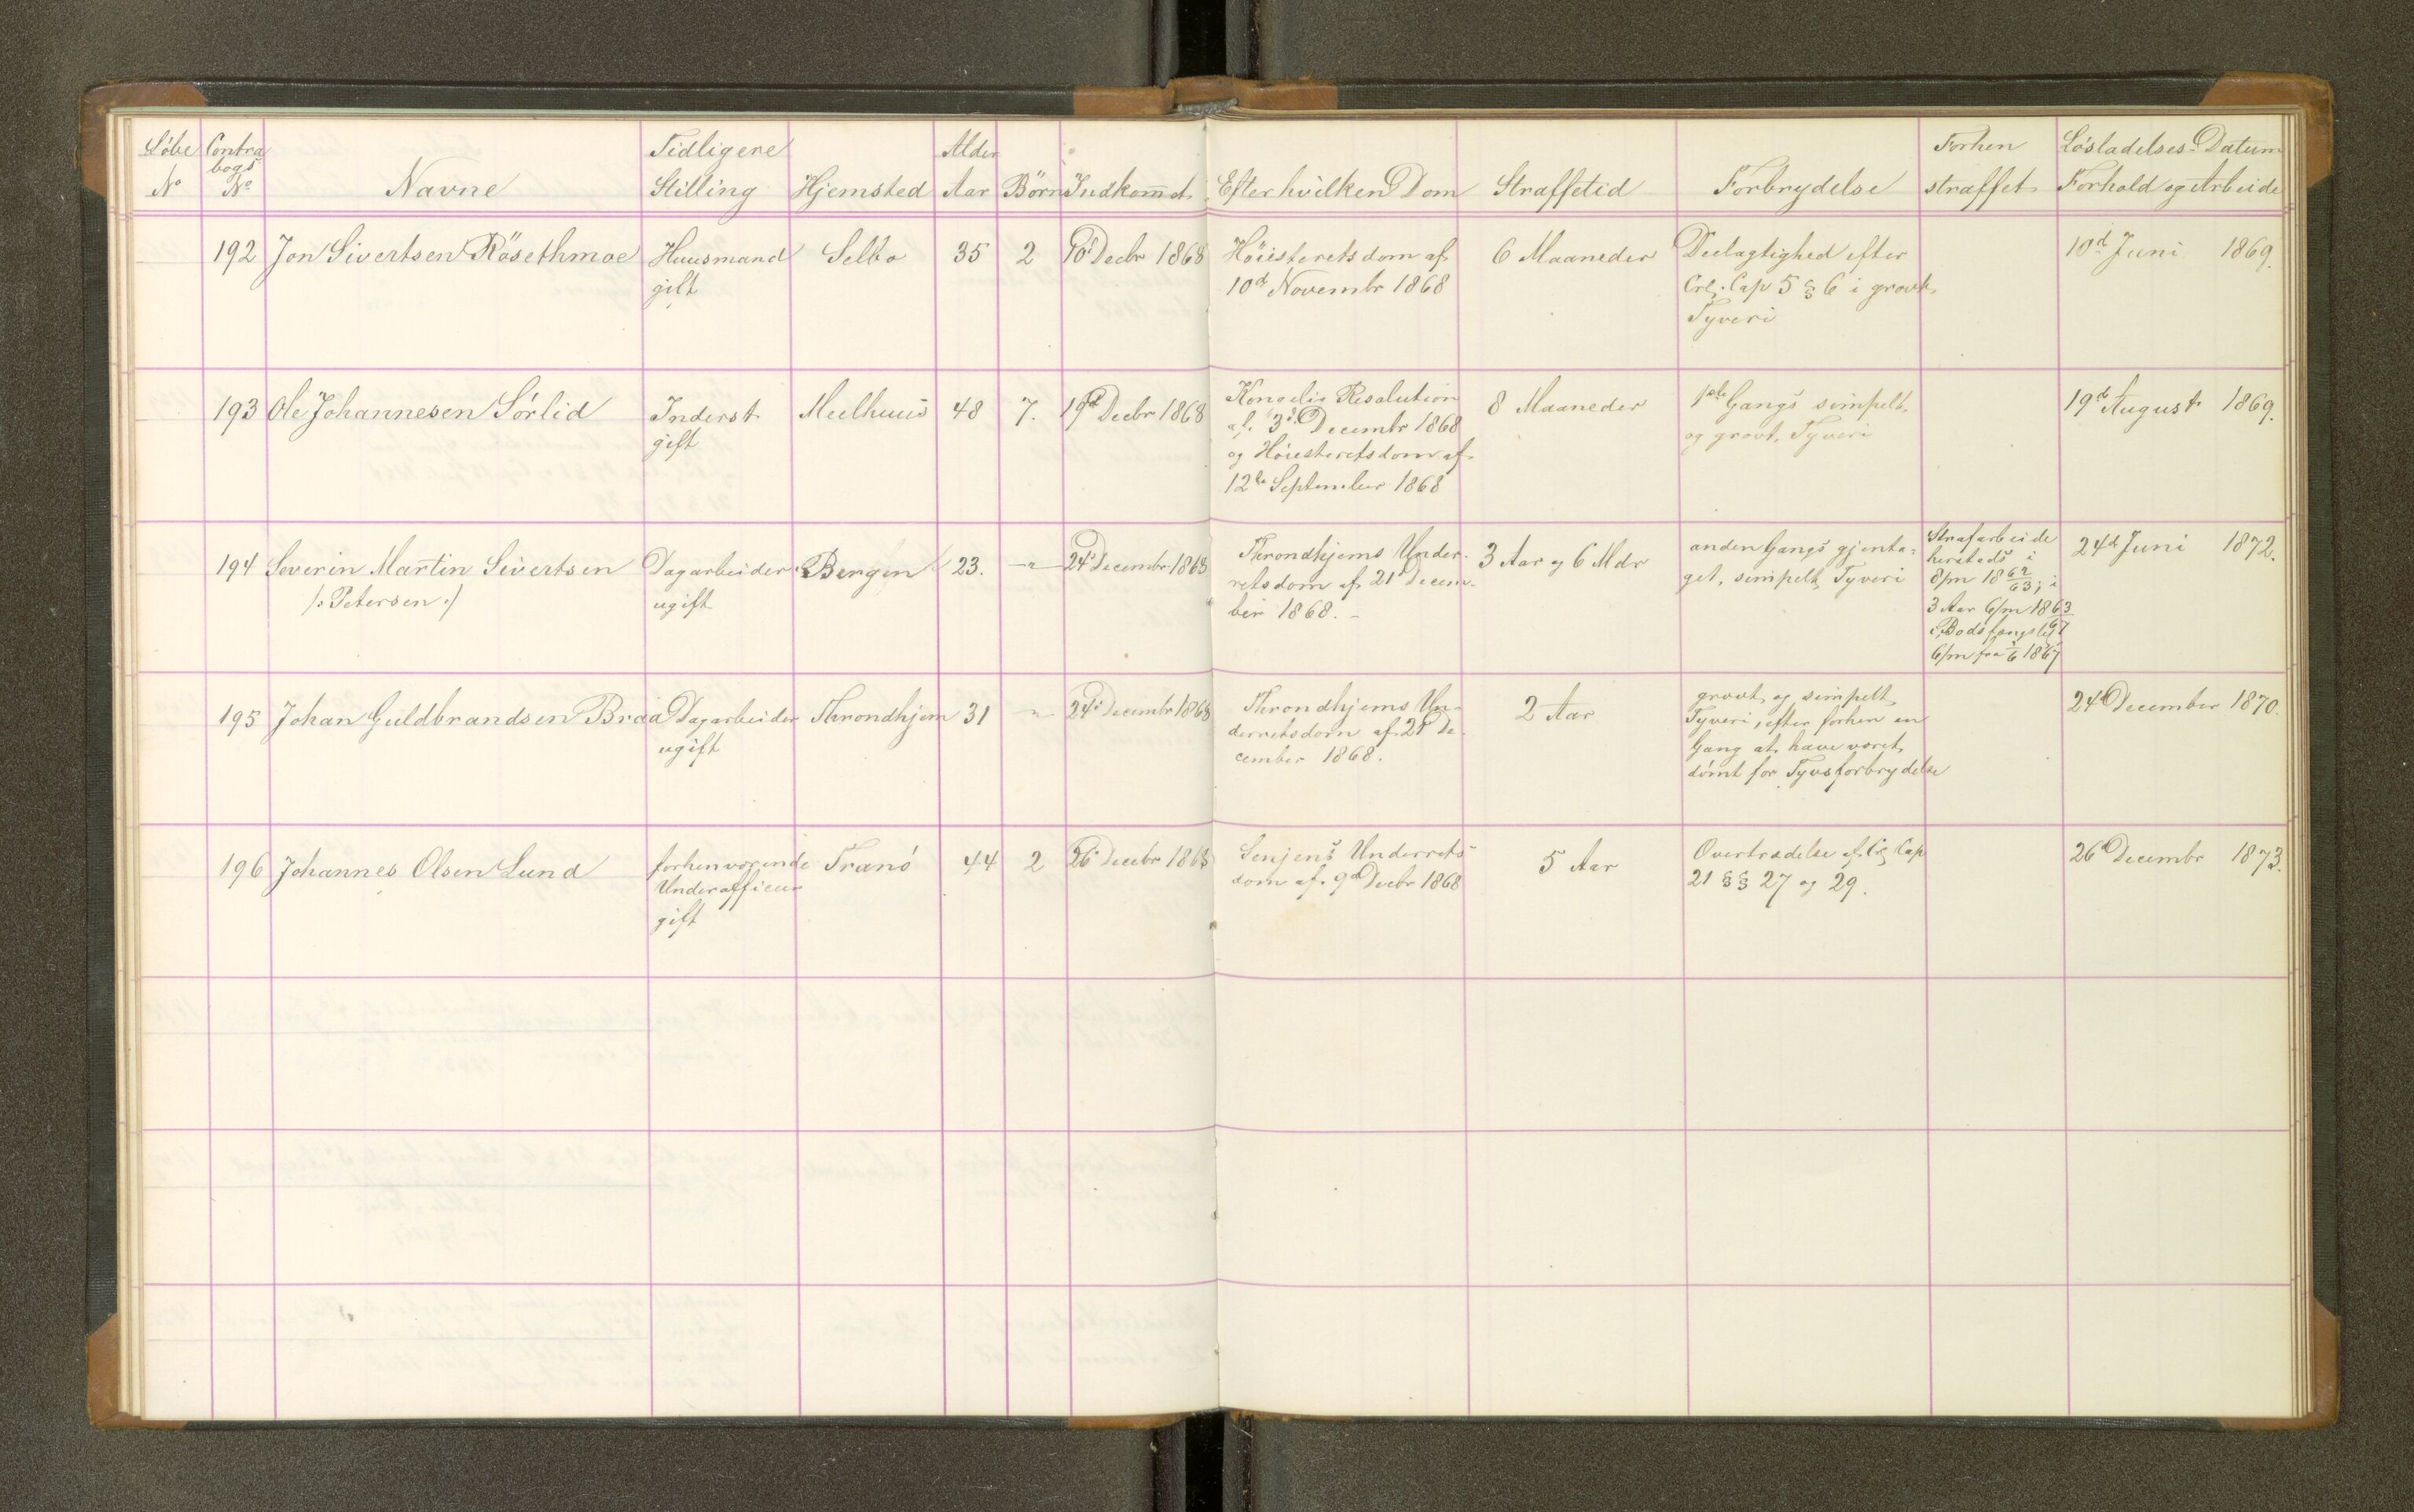 Löbe No
Contra bogs No
Navne
Tidligere Stilling
Hjemsted
Alder Aar
Börn
Indkommet
Efter hvilken Dom
Straffetid
Forbrydelse
Forhen straffet
Lösladelses-Datum Forhold og Arbeide
192 Jon Sivertsen Rösethmoe Huusmand Selbo 35 2 10d Decbr 1868 Höiesteretsdom af 6 Maaneder Deelagtighed efter 10d Juni 1869.
gift 10d Novembr 1868 Crl. Cap 5 § 6 i grovt
Tyveri
193 Ole Johannesen Sörlid Inderst Meelhuus 48 7. 19d Decbr 1868 Kongelig Resolution 8 Maaneder 1ste Gangs simpelt 19d August 1869.
gift af 3d Decembr 1868 og grovt Tyveri
og Höiesteretsdom af
12te September 1868
194 Severin Martin Sivertsen Dagarbeider Bergen 23. -"- 24d Decembr 1868 Throndhjems Under- 3 Aar og 6 Mdr anden Gangs gjenta- Strafarbeide 24d Juni 1872.
/: Petersen :/ ugift retsdom af 21d Decem- get, simpelt Tyveri hersteds i
ber 1868. - 8/m 18 62/63; i
3 Aar 6/m 1863/67
i Bodsfængslet
6/m fra 1867
195 Johan Guldbrandsen Braa Dagarbeider Throndhjem 31 -"- 24d Decembr 1868 Throndhjems Un- 2 Aar grovt og simpelt 24d December 1870.
ugift derretsdom af 21d De- Tyveri, efter forhen en
cember 1868. Gang at have været
dömt for Tyvsforbrydelse
196 Johannes Olsen Lund forhenværende Tranö 44 2 26d Decbr 1868 Senjens Underrets- 5 Aar Overtrædelse af Crl Cap 26d Decembr 1873.
Underofficeer dom af 9d Decbr 1868 21 §§ 27 og 29.
gift